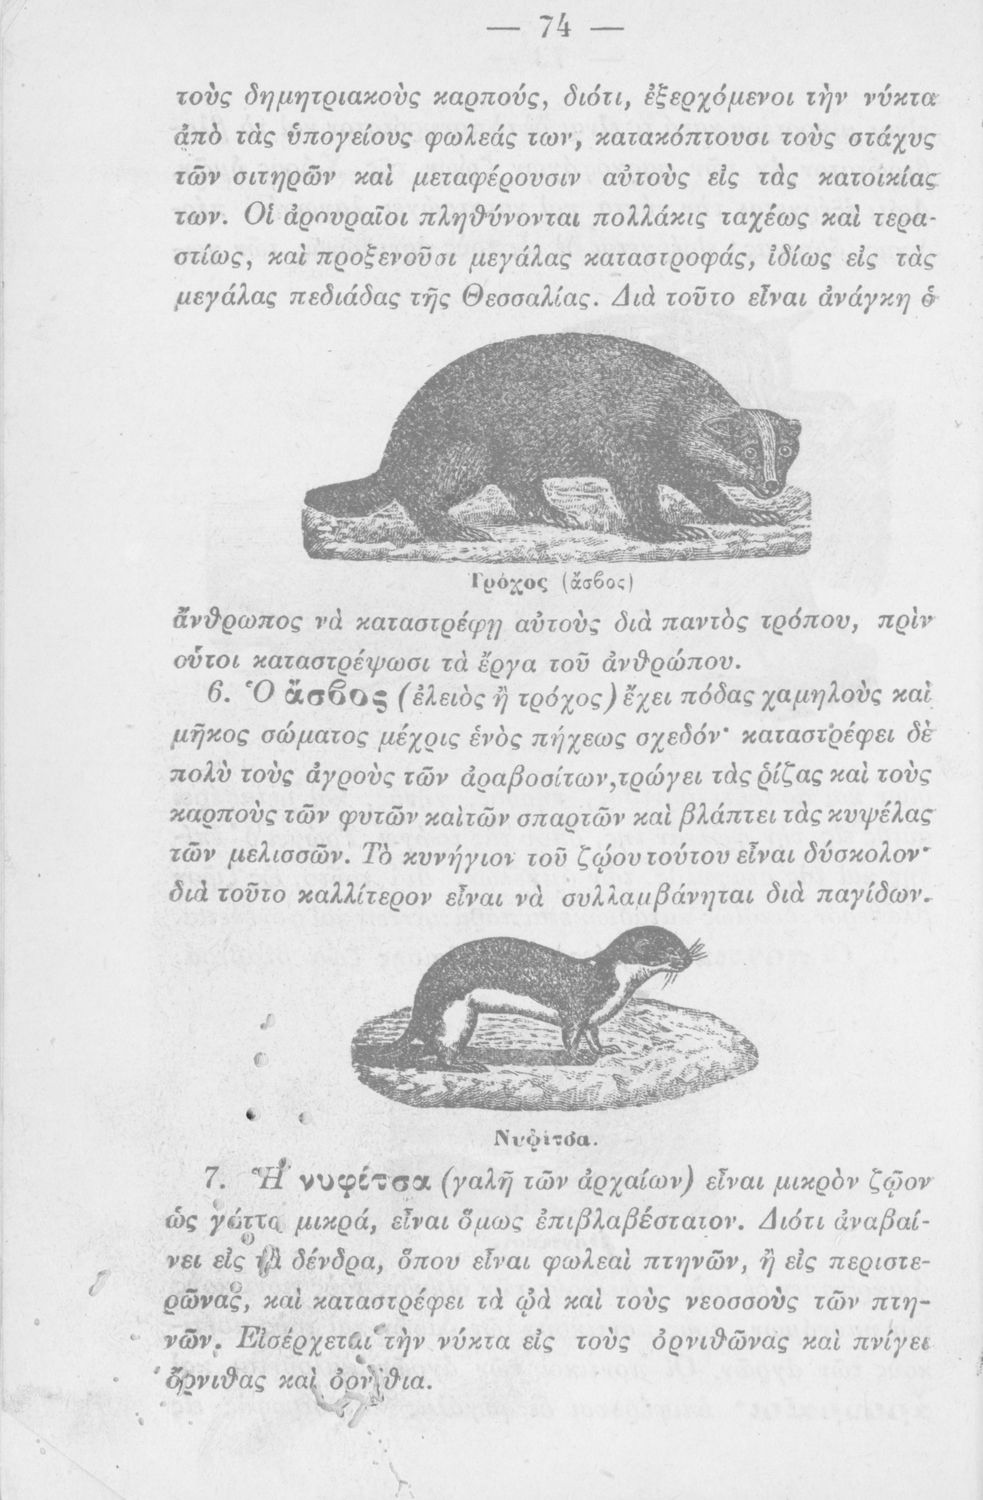 — 74 —
τοὺς δημητριακοὺς καρπούς, διότι, ἐξερχόμενοι τὴν νύκτα
ἀπὸ τὰς ὑπογείους φωλεάς των, κατακόπτουσι τοὺς στάχυς
τῶν σιτηρῶν καὶ μεταφέρουσιν αὐτοὺς εἰς τὰς κατοικίας
των. Οἱ ἀρουραῖοι πληθύνονται πολλάκις ταχέως καὶ τερα-
στίως, καὶ προξενοῦσι μεγάλας καταστροφάς, ἰδίως εἰς τὰς
μεγάλας πεδιάδας τῆς Θεσσαλίας. Διὰ τοῦτο εἶναι ἀνάγκη ὁ
Τρόχος (ἄσβος)
ἄνθρωπος νὰ καταστρέφῃ αὐτοὺς διὰ παντὸς τρόπου, πρὶν
οὗτοι καταστρέψωσι τὰ ἔργα τοῦ ἀνθρώπου.
6. Ὁ ἄσβος (ἐλειὸς ἢ τρόχος) ἔχει πόδας χαμηλοὺς καὶ
μῆκος σώματος μέχρις ἑνὸς πήχεως σχεδόν· καταστρέφει δὲ
πολὺ τοὺς ἀγροὺς τῶν ἀραβοσίτων, τρώγει τὰς ῥίζας καὶ τοὺς
καρποὺς τῶν φυτῶν καὶ τῶν σπαρτῶν καὶ βλάπτει τὰς κυψέλας
τῶν μελισσῶν. Τὸ κυνήγιον τοῦ ζῴου τούτου εἶναι δύσκολον·
διὰ τοῦτο καλλίτερον εἶναι νὰ συλλαμβάνηται διὰ παγίδων.
Νυφίτσα.
7. Ἡ νυφίτσα (γαλῆ τῶν ἀρχαίων) εἶναι μικρὸν ζῷον
ὡς γάττα μικρά, εἶναι ὅμως ἐπιβλαβέστατον. Διότι ἀναβαί-
νει εἰς τὰ δένδρα, ὅπου εἶναι φωλεαὶ πτηνῶν, ἢ εἰς περιστε-
ρῶνας, καὶ καταστρέφει τὰ ᾠὰ καὶ τοὺς νεοσσοὺς τῶν πτη-
νῶν. Εἰσέρχεται τὴν νύκτα εἰς τοὺς ὀρνιθῶνας καὶ πνίγει
ὄρνιθας καὶ ὀρνίθια.